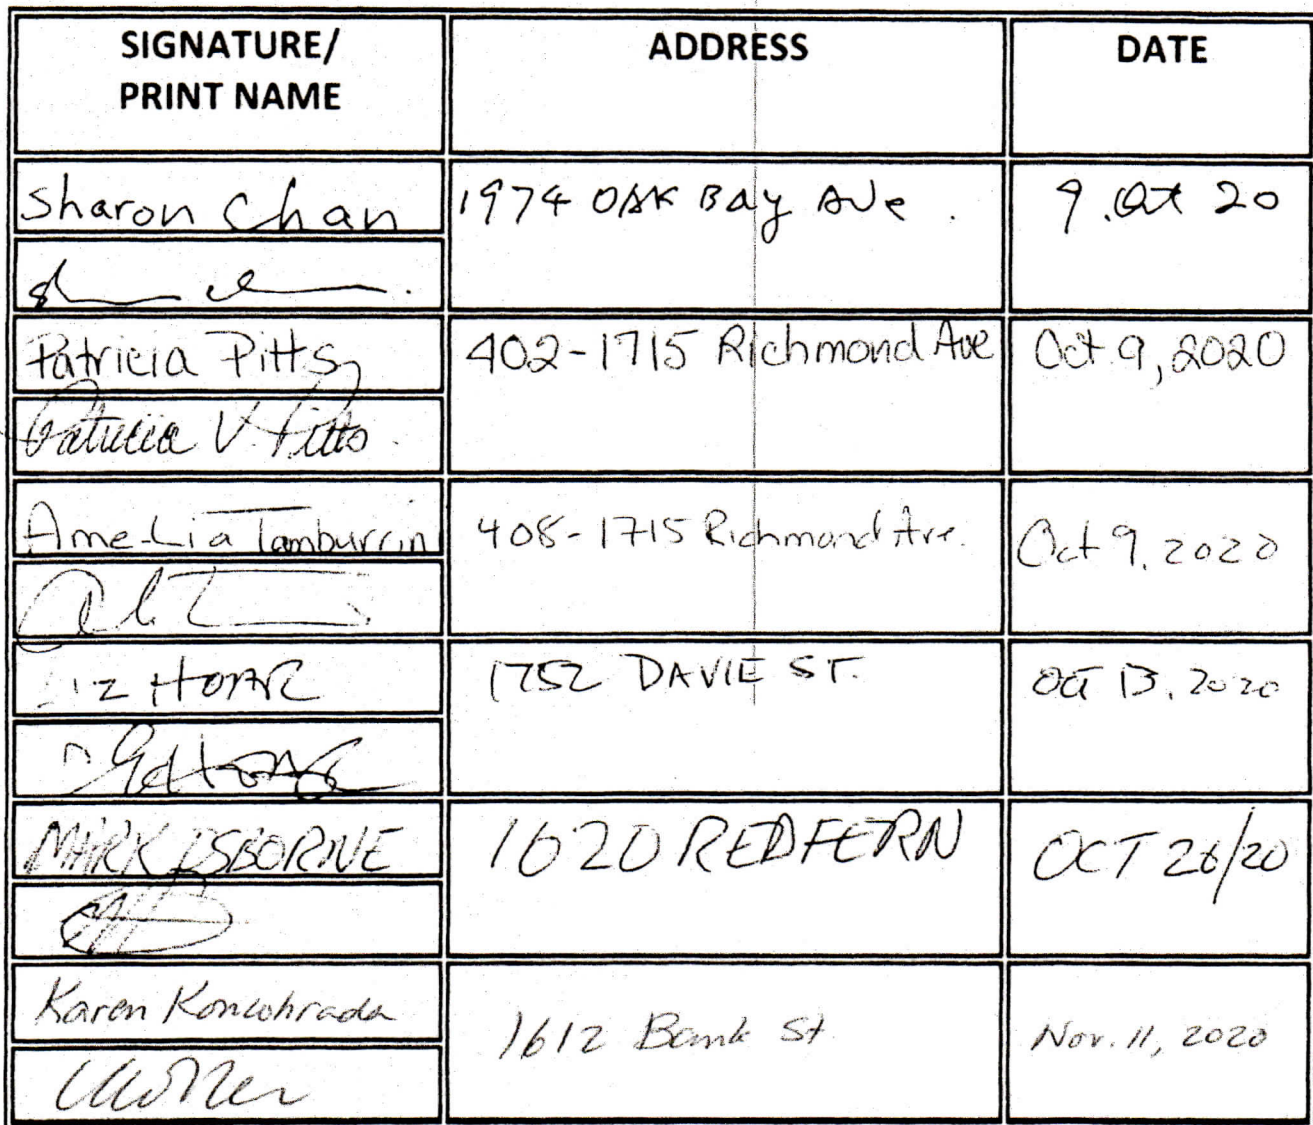 SIGNATURE/
PRINT NAME
ADDRESS
DATE
Sharon Chan
1974 OAK BAy AVe.
9. Oct 20
Patricia Pitts
402-1715 Richmond Ave
Oct 9, 2020
Patricia V. Pitts.
Ame-Lia Tamburrini
408-1715 Richmond Ave.
Oct 9, 2020
HOAR
1752 DAVIE ST.
OCT 13, 2020
MARK OSBORNE
1620 REDFERN
OCT 26/20
Karen
1612 Bank St
Nov. 11, 2020